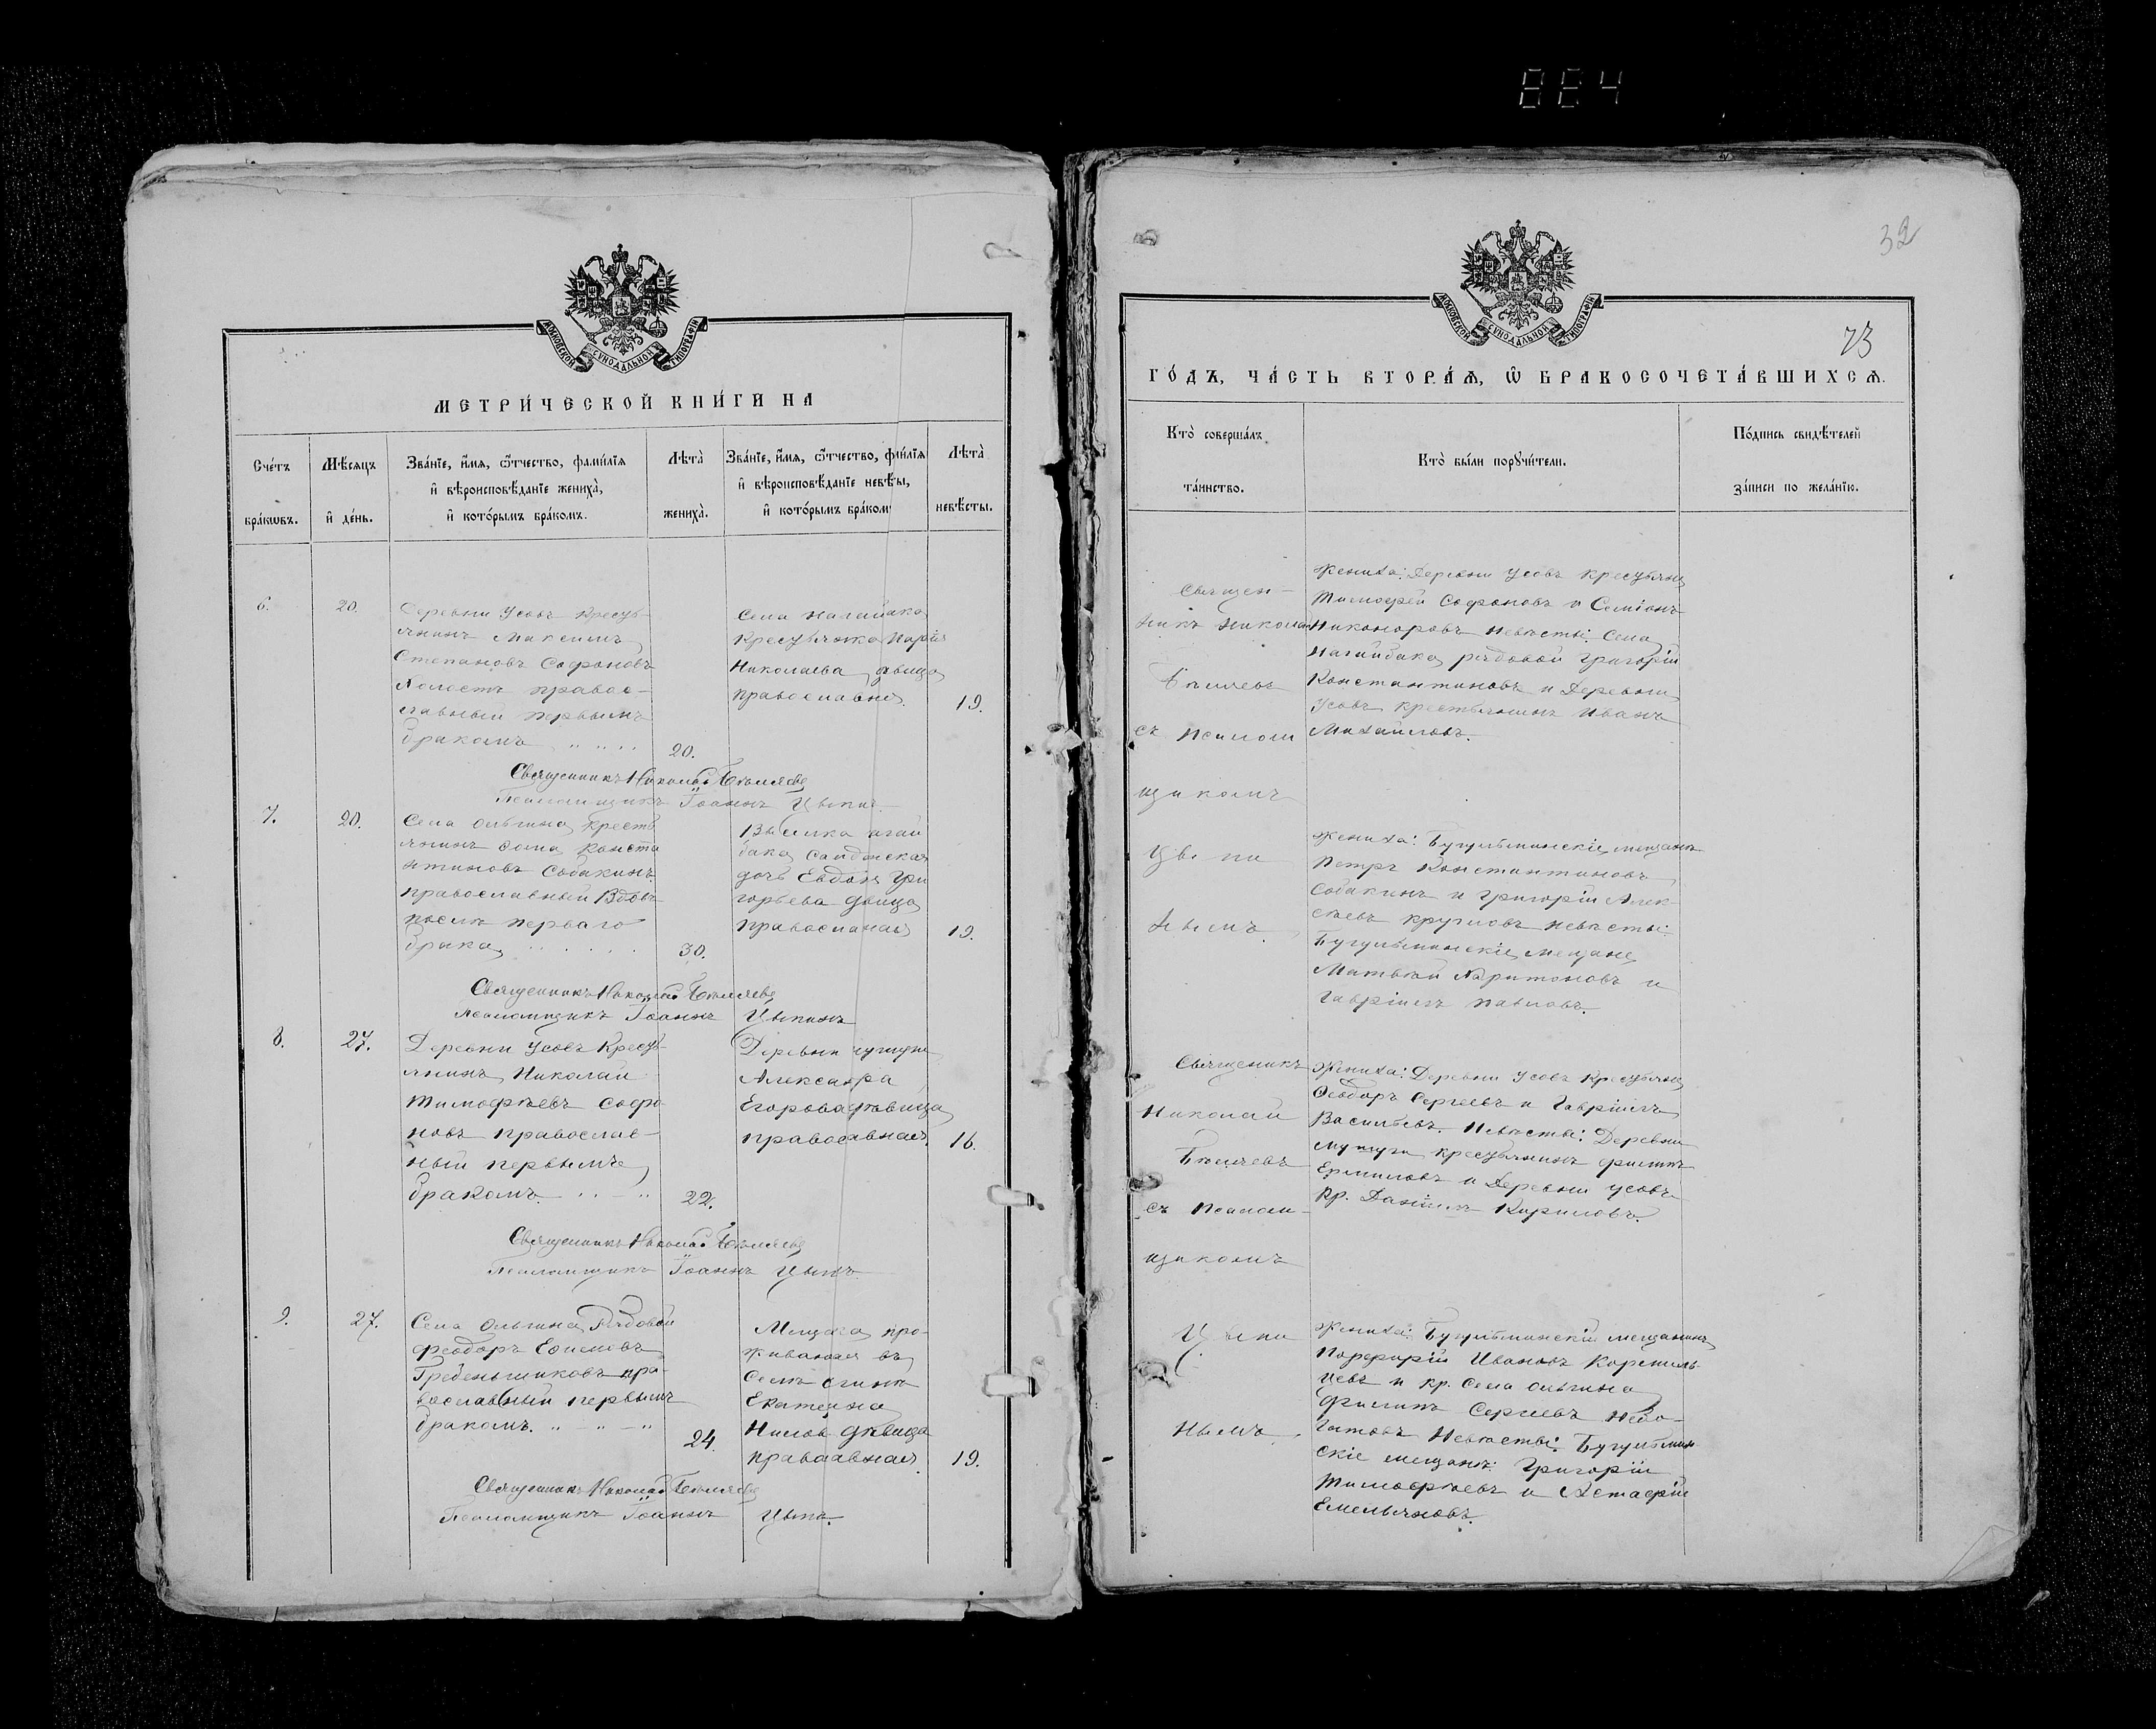 884
32
73
МОСКОВСКОЙ СѴНОДАЛЬНОЙ ТИПОГРАФІИ
МЕТРИ́ЧЕСКОЙ КНИ́ГИ НА
Сче́тъ бра́кѡвъ.
Мѣ́сяцъ и҆ де́нь.
Зва́нїе, и҆́мѧ, ѻ҆́тчество, фами́лїѧ
и҆ вѣроисповѣ́данїе жениха̀,
и҆ кото́рымъ бра́комъ.
Лѣта̀ жениха̀.
Зва́нїе, и҆́мѧ, ѻ҆́тчество, фми́лїѧ
и҆ вѣроисповѣ́данїе невѣ́ты,
и҆ кото́рымъ бра́комъ
Лѣта̀ невѣ́сты.
6.
20.
Деревни Усовъ Кресть-
янинъ Максимъ
Степановъ Софоновъ
Холостъ правос-
лавный первымъ
бракомъ
20.
Села Нагайбака
Крестьянка Марія
Николаева двица
православня.
19.
Священникъ Николай Бѣляевъ
Псаломщикъ Іоаннъ
7.
20.
Села Ольгина Кресть
янинъ Фома Конста
нтиновъ Собакинъ
православный Вдовъ
послѣ перваго
брака
30.
дочь Евдоя Гри
горьева двица
19.
Священникъ Николай Бѣляевъ
Псаломщикъ Іоаннъ Цыпинъ
8.
27.
Деревни Усовъ Кресть-
янинъ Николай
Тимофѣевъ Софо
новъ православ-
ный первымъ
бракомъ.
22.
Деревни
Александра
Егорова дѣвица
16.
Священникъ Николай Бѣляевъ
Псаломщикъ Іоаннъ
9.
27.
Села Ольгина Рядовой
Феодоръ
Гребеньшиковъ пра-
вославный первымъ
бракомъ.
24.
про-
живаюая въ
Селѣ
дѣвица
19.
Священникъ Николай Бѣляевъ
Псаломщикъ Іоаннъ
ГО́ДЪ, ЧА́СТЬ ВТОРА́Ѧ, Ѡ҆ БРАКОСОЧЕТА́ВШИХСѦ.
Кто̀ соверша́лъ
та́инство.
Кто̀ бы́ли порꙋчи́тели.
По́дпись свидѣ́телей
за́писи по жела́нїю.
Священ-
никъ Никола
Бѣляевъ
съ Псалом
щикомъ
Цыпи
нымъ
Жениха: Деревни Усовъ Крестьяне
Тимофей Софоновъ и Семіонъ
Никоноровъ Невѣсты: Села
Нагайбака рядовой Григорій
Константиновъ и Деревни
Усовъ крестьянинъ Иванъ
Михайловъ.
Жениха: Бугульминскіе мещане
Петръ Константиновъ
Собакинъ и Григорій Алек-
сѣевъ Кругловъ Невѣсты:
Бугульминскіе мещане
Матвѣй Харитоновъ и
Гавріилъ Павловъ.
Священикъ
Николай
Бѣляевъ
съ Псалом-
щикомъ
Цыпи
нымъ.
Жениха: Деревни Усовъ Крестьяне
Ѳеодоръ Сергѣевъ и Гавріилъ
Васильевъ. Невѣсты: Деревни
крестьянинъ Филипъ
Ермиловъ и Деревни Усовъ
Кр. Даніилъ Кириловъ.
Жениха: Бугульминскій мещанинъ
Порфирій Ивановъ Корениль-
цевъ и кр. Села Ольгина
Филипъ Сергѣевъ Небо-
гатовъ Невѣсты: Бугульмин-
скіе мещане: Григорій
Тимофѣевъ и Астафій
Емельяновъ.